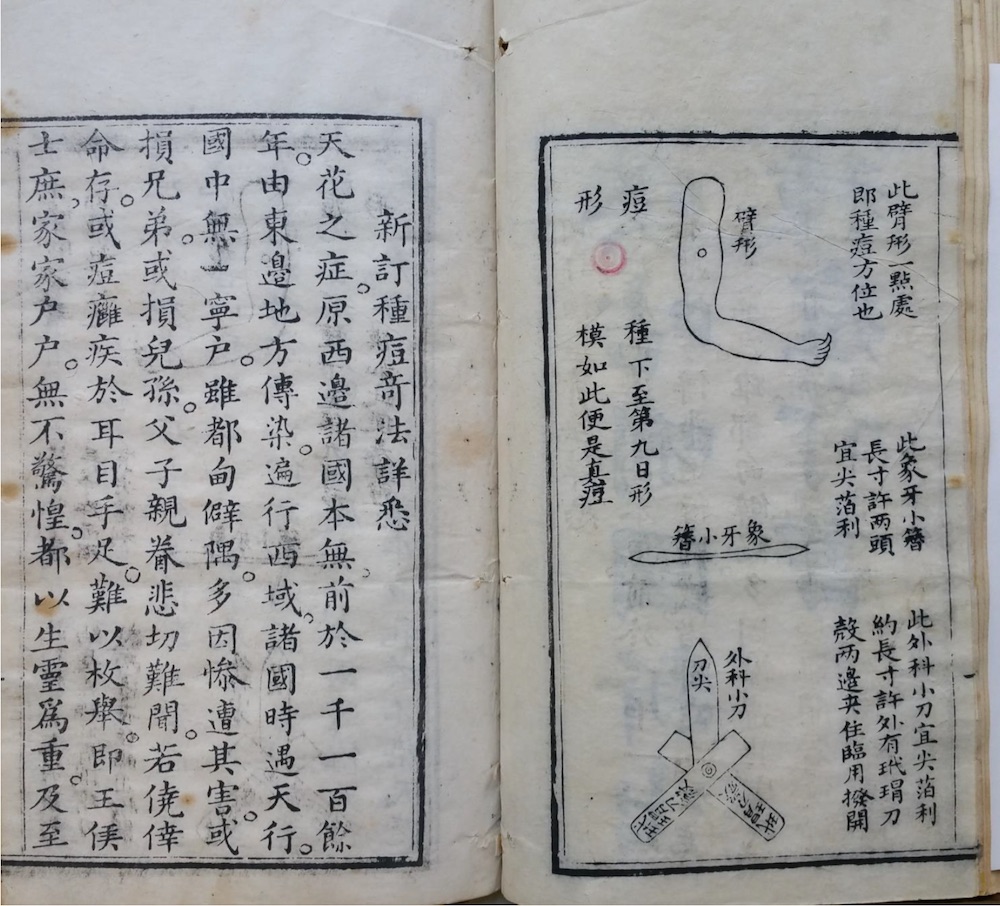 此臂形一點處
即種痘方位也
臂形
痘形
種下至第九日形
模如此便是真痘
此象牙小簪
長寸許兩頭
宜尖萡利
象牙小簪
此外科小刀宜尖萡利
約長寸許外有玳瑁刀
殼两邊夾住臨用撥開
外科小刀
刀尖
新訂種痘竒法詳悉
天花之症。原西邊諸國本無。前於一千一百餘
年。由東邊地方傳染。遍行西域。諸國時遇天行。
國中無一寧户。雖都甸僻隅。多因慘遭其害。或
損兄弟。或損兒孫。父子親眷悲切難聞。若僥倖
命存。或痘癰疾於耳目手足。難以枚舉。即王侯
士庶。家家户户。無不驚惶。都以生靈爲重。及至